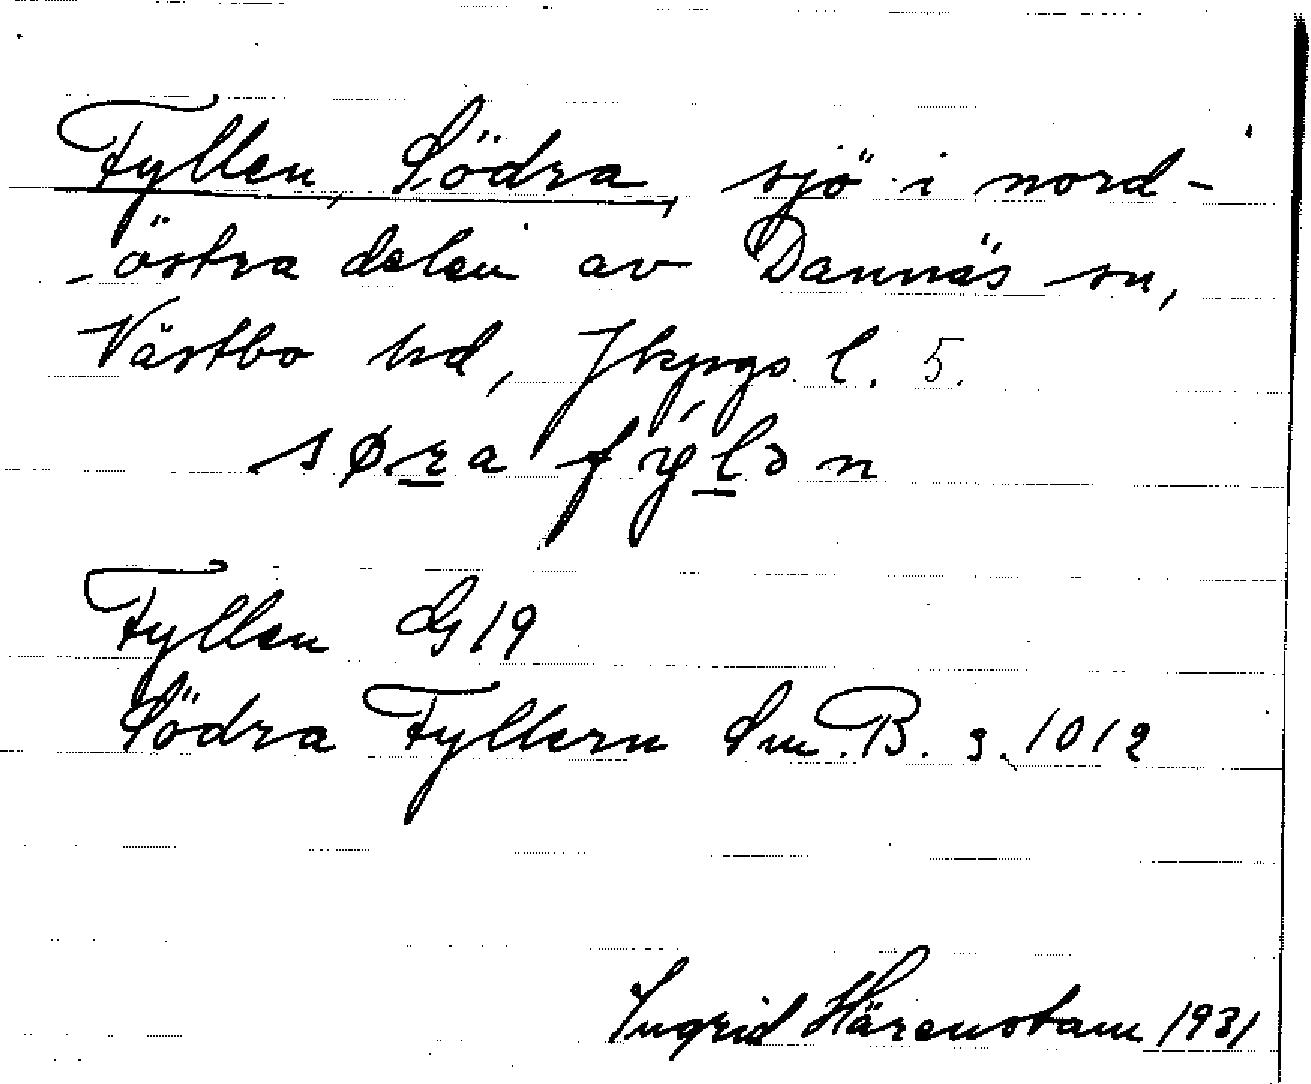 Fyllen, Södra, sjö i nord-
östra delen av Dannäs sn,
Västbo hd, Jkpgs l. 5.
søra fylən
Fyllen G 19
Södra Fyllern Sm. B. s. 1012
Ingrid Härenstam 1931